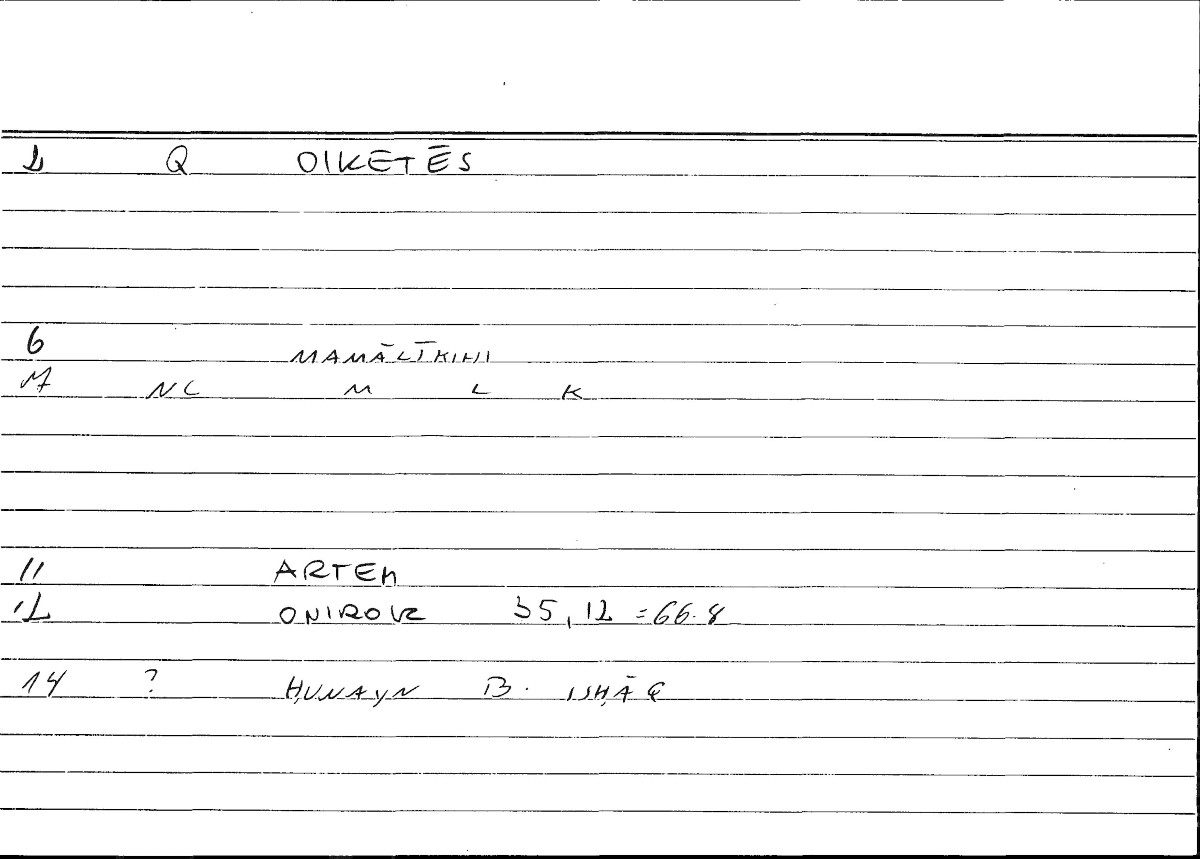 1 Q OIKETĒS
6 MAMĀLĪKIHI
7 NC M L K
11 ARTEM
12 ONIROK 35,12 =66.8
14 ? ḤUNAYN B. ISḤĀQ